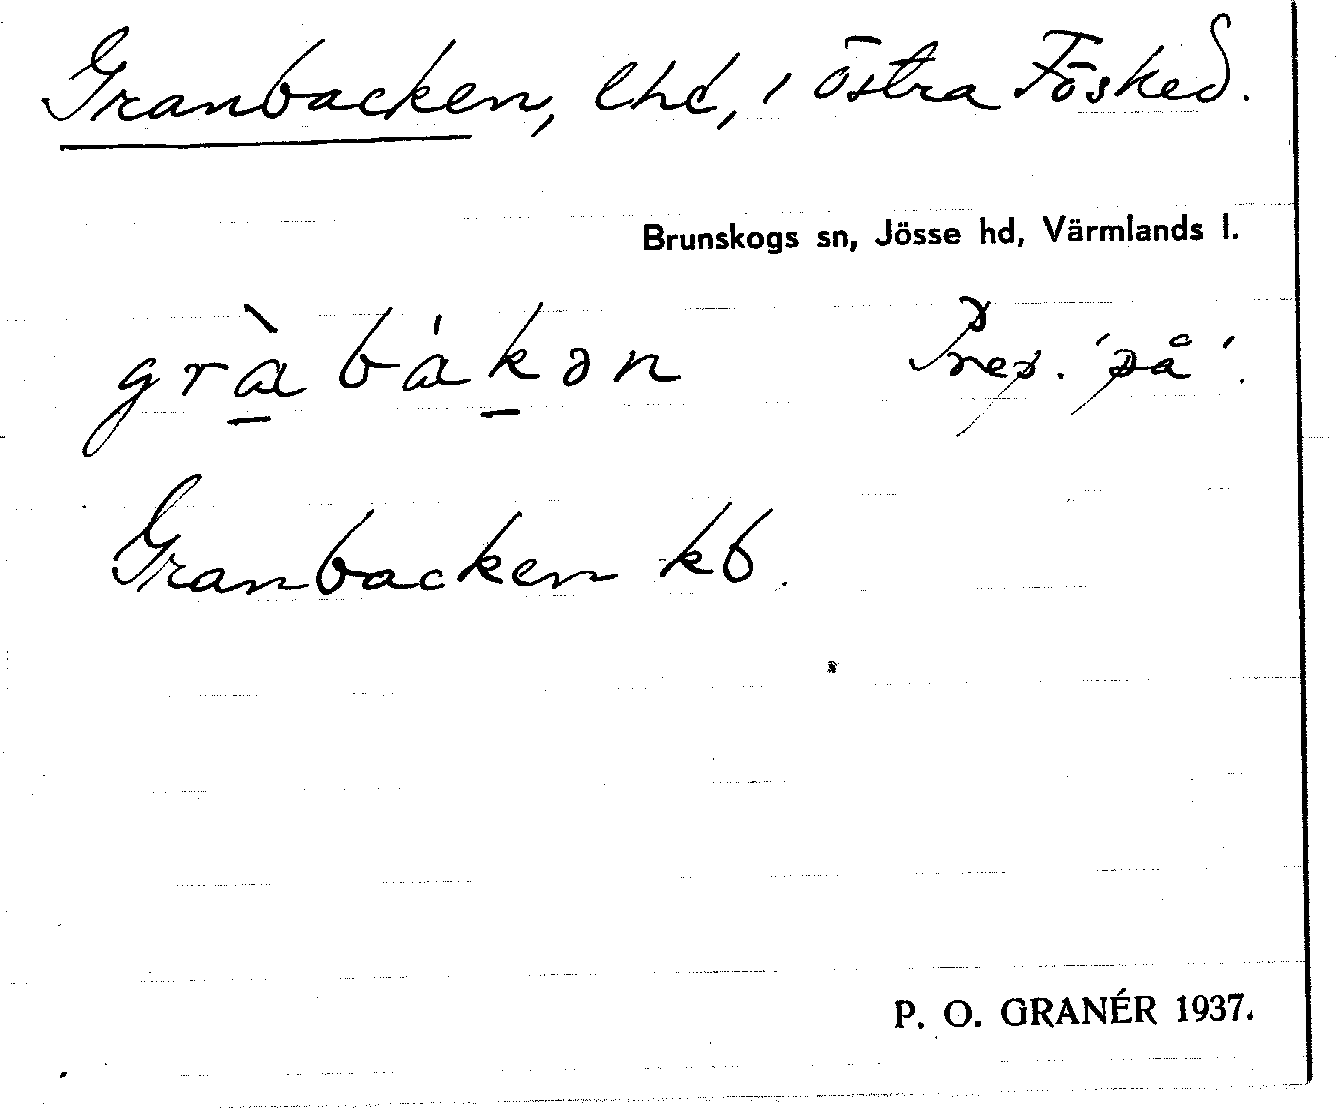 Granbacken, lhd, i östra Fösked.
Brunskogs sn, Jösse hd, Värmlands l.
gràbákən Prep. 'på'.
Granbacken kb.
P. O. GRANÉR 1937.